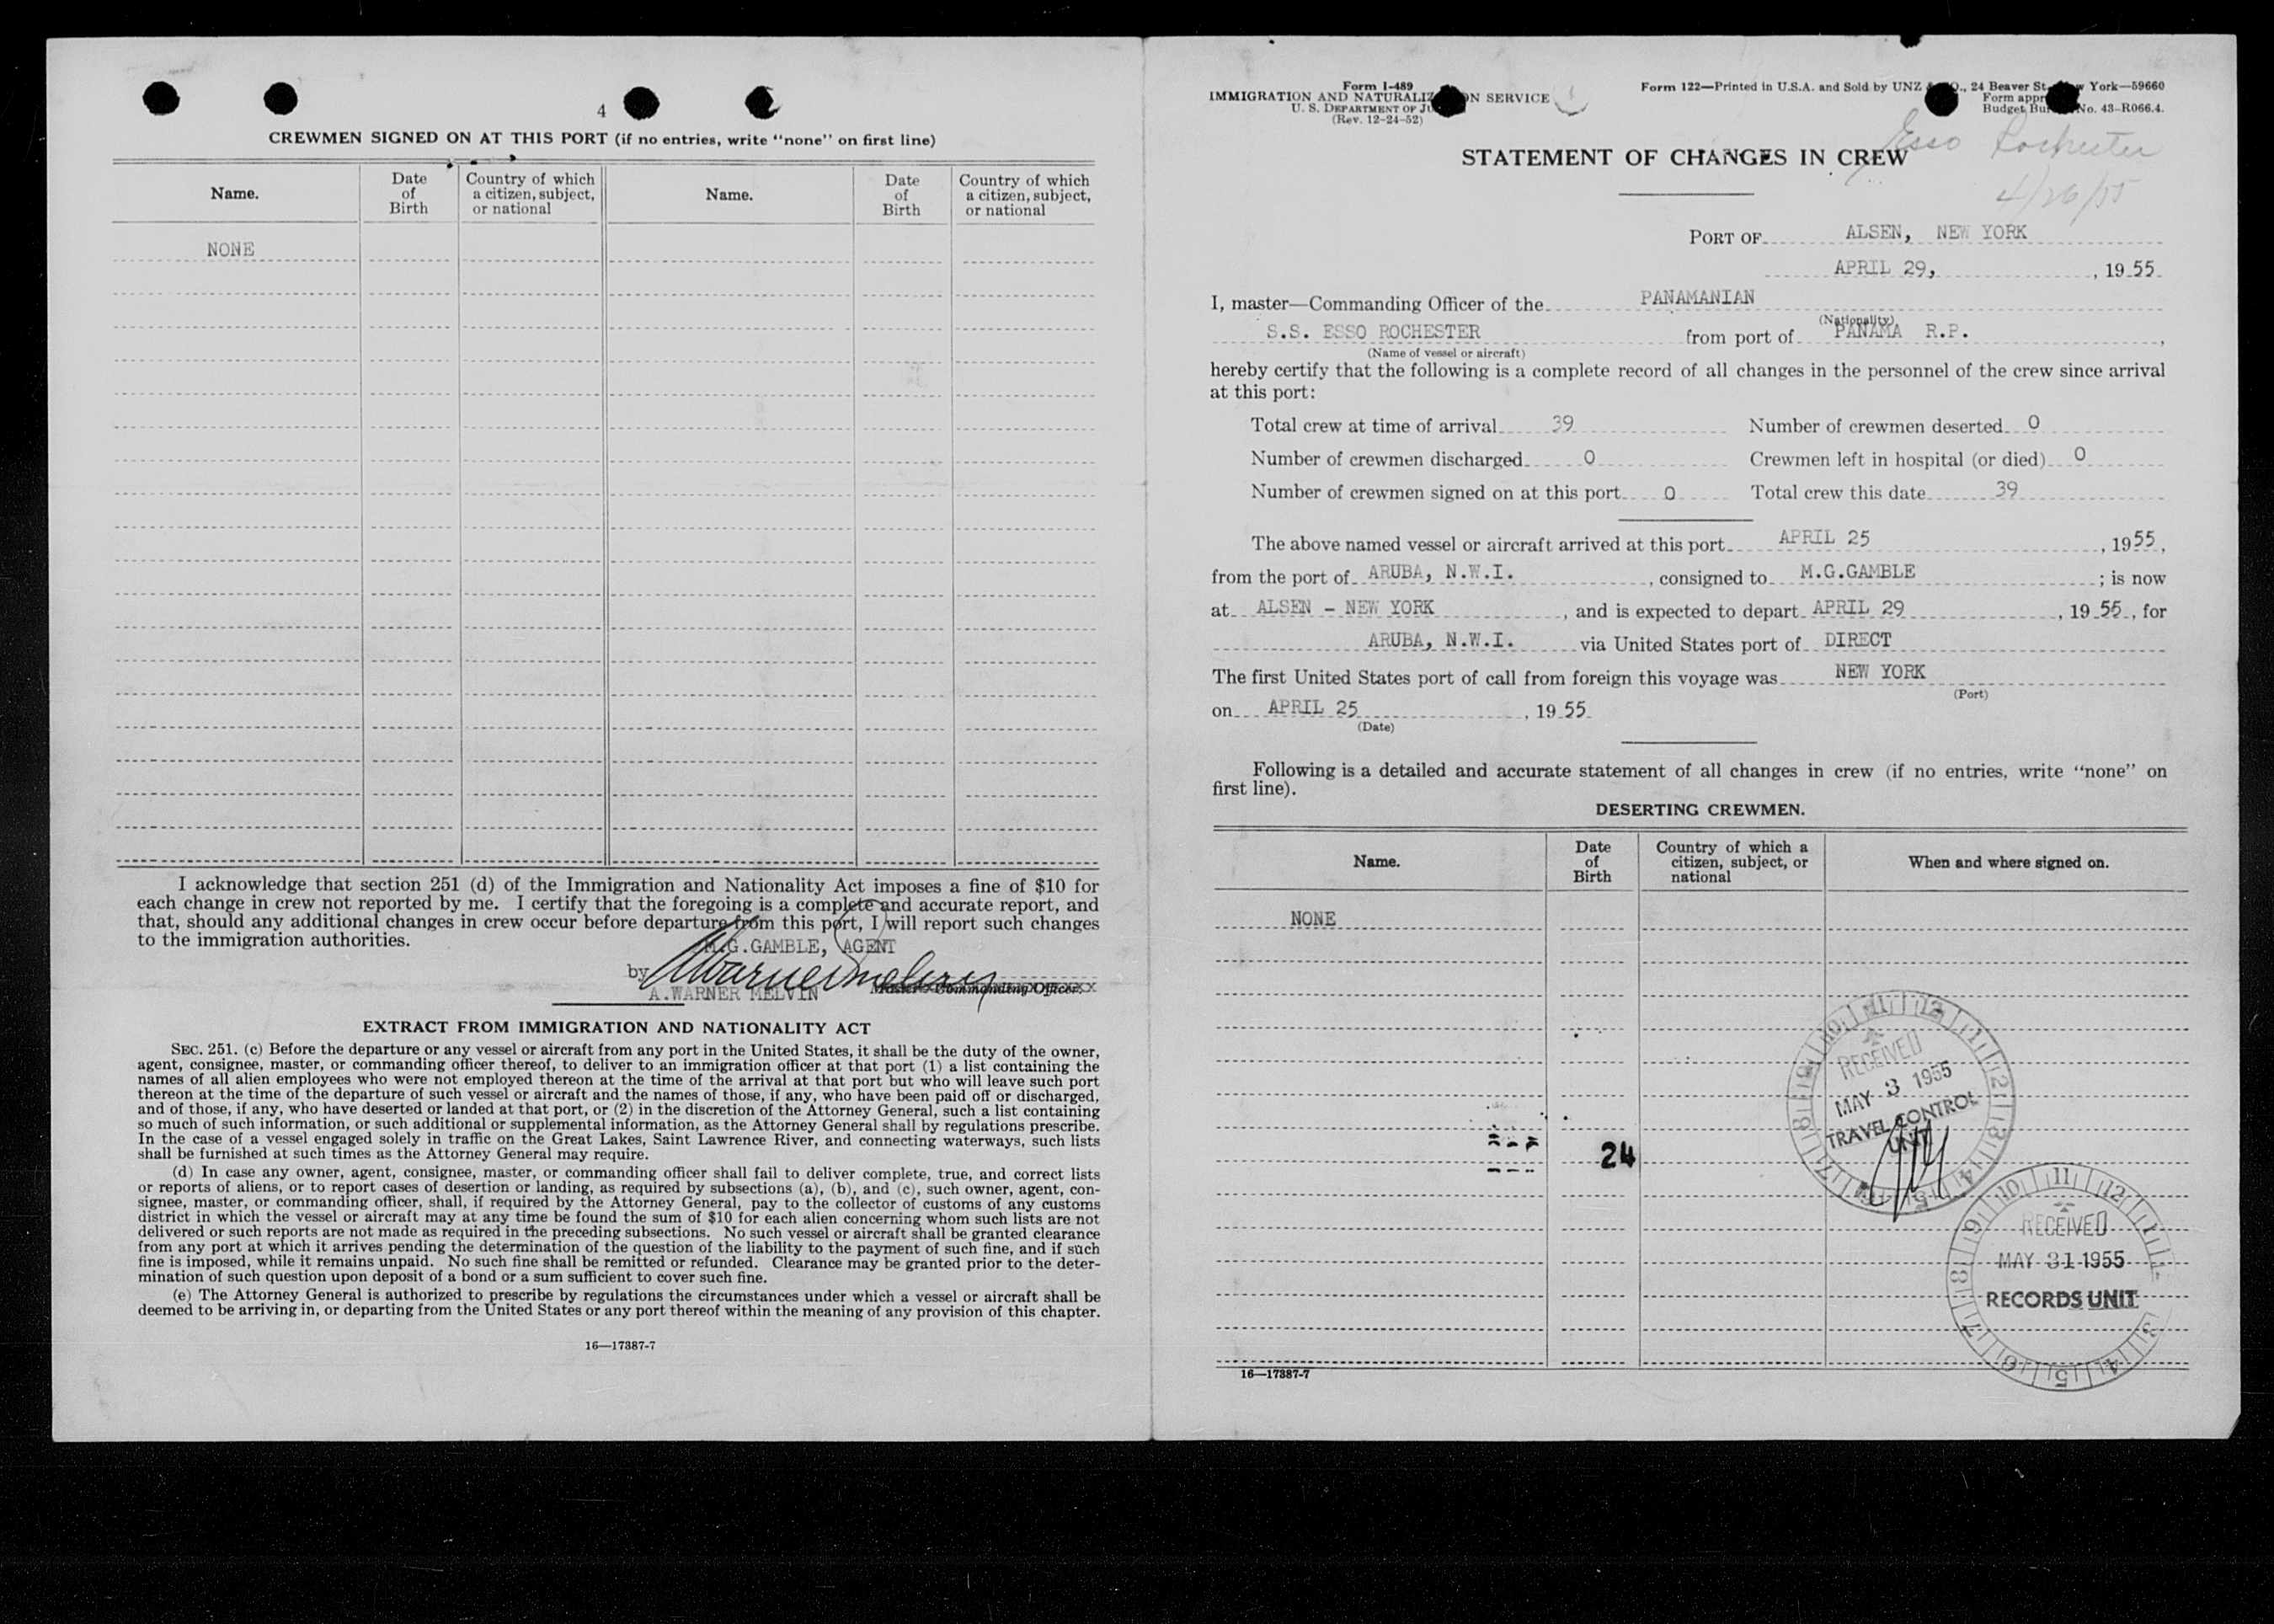 4
CREWMEN SIGNED ON AT THIS PORT (if no entries, write "none" on first line)
Name. Date of Birth Country of which a citizen, subject, or national Name. Date of Birth Country of which a citizen, subject, or national
NONE
I acknowledge that section 251 (d) of the Immigration and Nationality Act imposes a fine of $10 for
each change in crew not reported by me. I certify that the foregoing is a complete and accurate report, and
that, should any additional changes in crew occur before departure from this port, I will report such changes
to the immigration authorities.
M.G.GAMBLE, AGENT
by
A.WARNER MELVIN Commanding Officer.
EXTRACT FROM IMMIGRATION AND NATIONALITY ACT
SEC. 251. (c) Before the departure or any vessel or aircraft from any port in the United States, it shall be the duty of the owner,
agent, consignee, master, or commanding officer thereof, to deliver to an immigration officer at that port (1) a list containing the
names of all alien employees who were not employed thereon at the time of the arrival at that port but who will leave such port
thereon at the time of the departure of such vessel or aircraft and the names of those, if any, who have been paid off or discharged,
and of those, if any, who have deserted or landed at that port, or (2) in the discretion of the Attorney General, such a list containing
so much of such information, or such additional or supplemental information, as the Attorney General shall by regulations prescribe.
In the case of a vessel engaged solely in traffic on the Great Lakes, Saint Lawrence River, and connecting waterways, such lists
shall be furnished at such times as the Attorney General may require.
(d) In case any owner, agent, consignee, master, or commanding officer shall fail to deliver complete, true, and correct lists
or reports of aliens, or to report cases of desertion or landing, as required by subsections (a), (b), and (c), such owner, agent, con-
signee, master, or commanding officer, shall, if required by the Attorney General, pay to the collector of customs of any customs
district in which the vessel or aircraft may at any time be found the sum of $10 for each alien concerning whom such lists are not
delivered or such reports are not made as required in the preceding subsections. No such vessel or aircraft shall be granted clearance
from any port at which it arrives pending the determination of the question of the liability to the payment of such fine, and if such
fine is imposed, while it remains unpaid. No such fine shall be remitted or refunded. Clearance may be granted prior to the deter-
mination of such question upon deposit of a bond or a sum sufficient to cover such fine.
(e) The Attorney General is authorized to prescribe by regulations the circumstances under which a vessel or aircraft shall be
deemed to be arriving in, or departing from the United States or any port thereof within the meaning of any provision of this chapter.
16—17387-7
Form I-489
IMMIGRATION AND NATURALIZ ON SERVICE
U. S. DEPARTMENT OF JU
(Rev. 12-24-52)
Form 122—Printed in U.S.A. and Sold by UNZ & O., 24 Beaver St. w York—59660
Form appr
Budget Bur No. 43-R066.4.
Esso Rochester
STATEMENT OF CHANGES IN CREW
4/26/55
PORT OF ALSEN, NEW YORK
APRIL 29, , 19 55
I, master—Commanding Officer of the PANAMANIAN
(Nationality)
S.S. ESSO ROCHESTER from port of PANAMA R.P. ,
(Name of vessel or aircraft)
hereby certify that the following is a complete record of all changes in the personnel of the crew since arrival
at this port:
Total crew at time of arrival 39 Number of crewmen deserted 0
Number of crewmen discharged 0 Crewmen left in hospital (or died) 0
Number of crewmen signed on at this port 0 Total crew this date 39
The above named vessel or aircraft arrived at this port APRIL 25 , 19 55 ,
from the port of ARUBA, N.W.I. , consigned to M.G.GAMBLE ; is now
at ALSEN - NEW YORK , and is expected to depart APRIL 29 , 19 55 , for
ARUBA, N.W.I. via United States port of DIRECT
The first United States port of call from foreign this voyage was NEW YORK
(Port)
on APRIL 25 , 19 55
(Date)
Following is a detailed and accurate statement of all changes in crew (if no entries, write "none" on
first line).
DESERTING CREWMEN.
Name. Date of Birth Country of which a citizen, subject, or national When and where signed on.
NONE
24
RECEIVED
MAY 3 1955
TRAVEL CONTROL
UNIT
RECEIVED
MAY 31 1955
RECORDS UNIT
16—17387-7